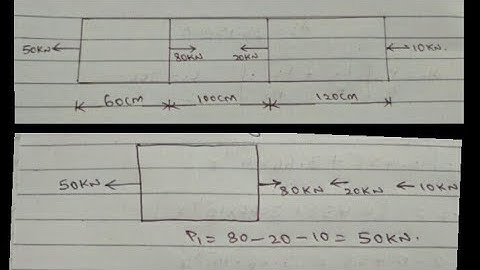 50KN 80KN 20KN 10KN.
60cm 100cm 120cm
50KN 80KN 20KN 10KN
P₁ = 80-20-10 = 50KN.